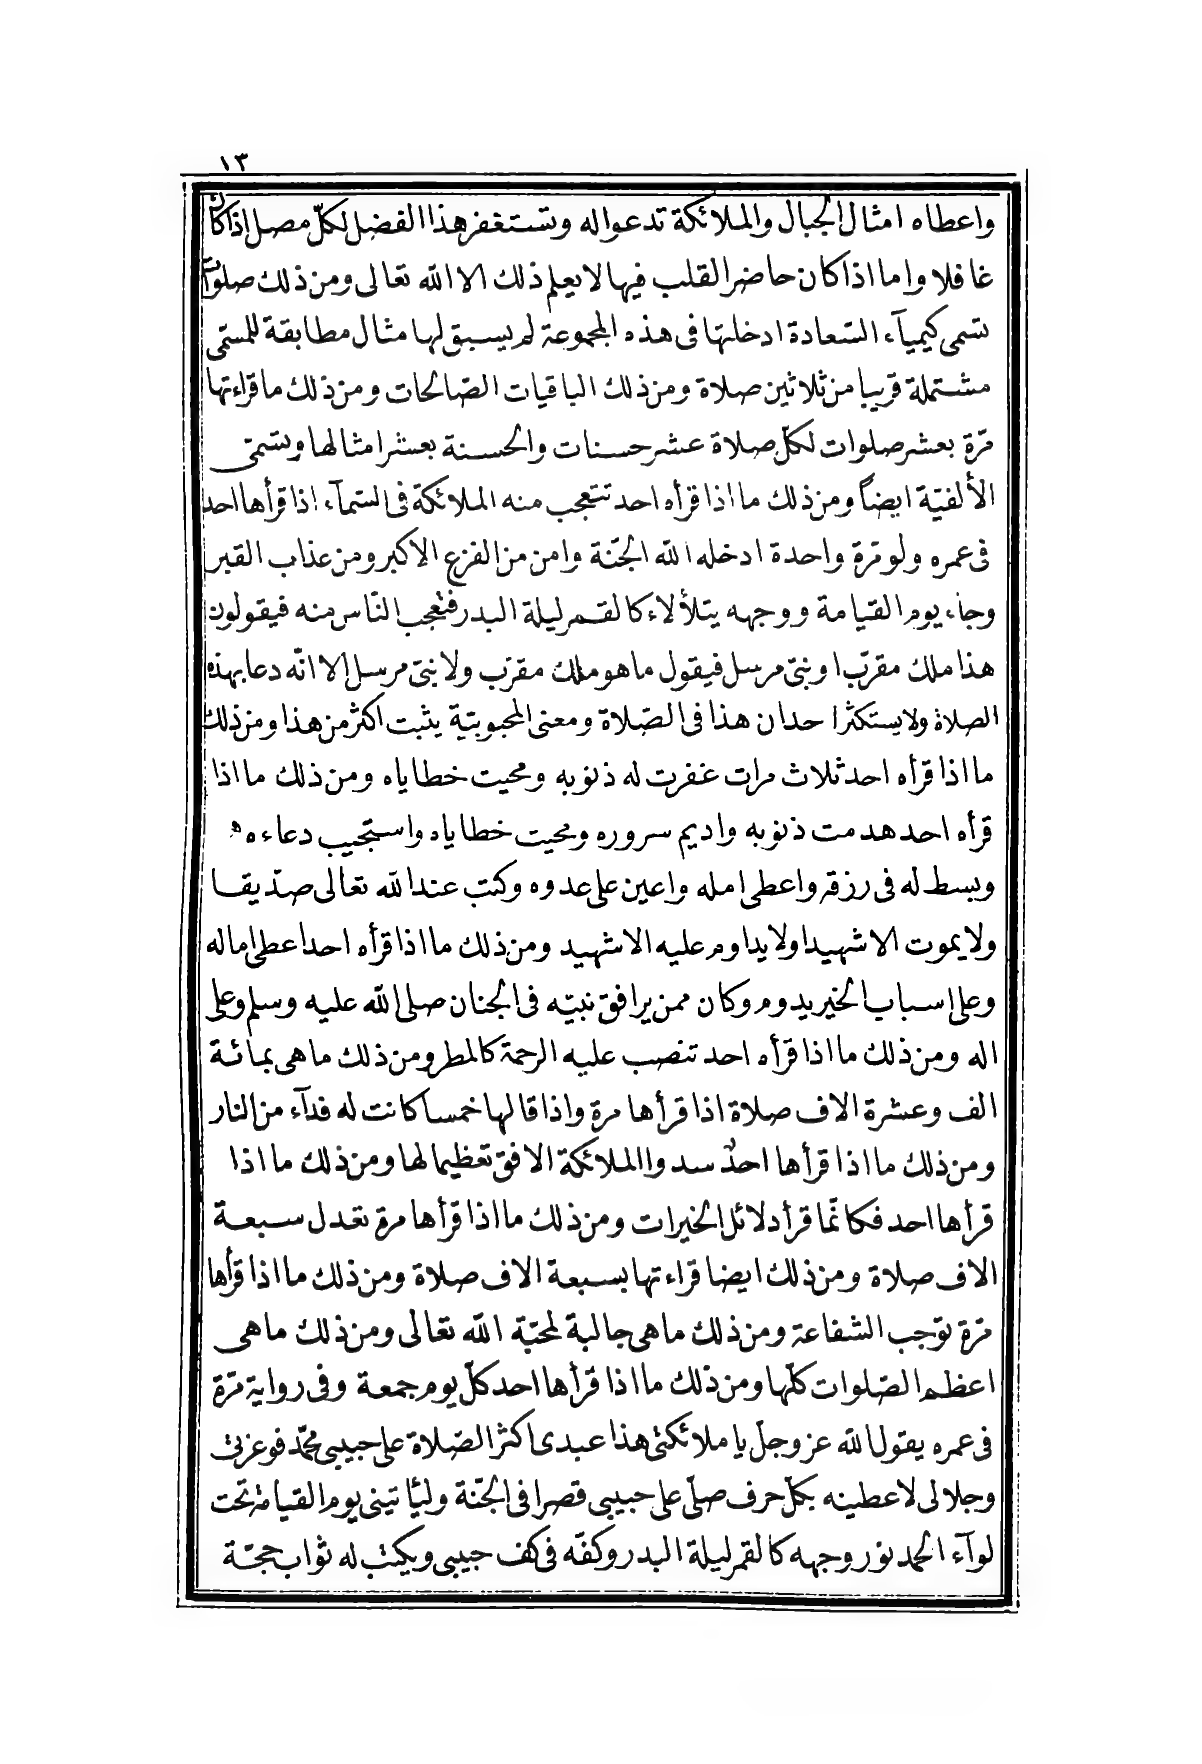 ١٣
واعطاه امثال الجبال والملائكة تدعوا له وتستغفر هذا الفضل لكلّ مصل اذا كان
غافلا واما اذا كان حاضر القلب فيها لا يعلم ذلك الا الله تعالى ومن ذلك صلوات
تسمى كيمياء السّعادة ادخلتها فى هذه المجموعة لم يسبق لها مثال مطابقة للمسمّى
مشتملة قريبا من ثلاثين صلاة ومن ذلك الباقيات الصّالحات ومن ذلك ما قراءتها
مرّة بعشر صلوات لكلّ صلاة عشر حسنات والحسنة بعشر امثالها وتسمّى
الألفيّة ايضاً ومن ذلك ما اذا قرأه احد تتعجب منه الملائكة فى السّمآء اذا قرأها احد
فى عمره ولو مرّة واحدة ادخله الله الجنّة وامن من الفزع الاكبر ومن عذاب القبر
وجاء يوم القيامة ووجهه يتلألاء كالقمر ليلة البدر فتعجب النّاس منه فيقولون
هذا ملك مقرّب او نبىّ مرسل فيقول ما هو ملك مقرّب ولا نبىّ مرسل الا انّه دعا بهذه
الصلاة ولا يستكثر احد ان هذا فى الصّلاة ومعنى المحبوبيّة يثبت اكثر من هذا ومن ذلك
ما اذا قرأه احد ثلاث مرات غفرت له ذنوبه ومحيت خطاياه ومن ذلك ما اذا
قرأه احد هدمت ذنوبه واديم سروره ومحيت خطاياه واستجيب دعاءه ه
وبسط له فى رزقه واعطى امله واعين على عدوه وكتب عند الله تعالى صدّيقا
ولا يموت الا شهيدا ولا يداوم عليه الا شهيد ومن ذلك ما اذا قرأه احد اعطى اماله
وعلى اسباب الخير يدوم وكان ممن يرافق نبيّه فى الجنان صلى الله عليه وسلم وعلى
اله ومن ذلك ما اذا قرأه احد تنصب عليه الرحمة كالمطر ومن ذلك ما هى بمائة
الف وعشرة الاف صلاة اذا قرأها مرة واذا قالها خمسا كانت له فدآء من النار
ومن ذلك ما اذا قرأها احد سدوا الملائكة الافق تعظيما لها ومن ذلك ما اذا
قرأها احد فكانّما قرأ دلائل الخيرات ومن ذلك ما اذا قرأها مرة تعدل سبعة
الاف صلاة ومن ذلك ايضا قراءتها بسبعة الاف صلاة ومن ذلك ما اذا قرأها
مرّة توجب الشفاعة ومن ذلك ما هى جالبة لمحبّة الله تعالى ومن ذلك ما هى
اعظم الصّلوات كلّها ومن ذلك ما اذا قرأها احد كلّ يوم جمعة وفى رواية مرّة
فى عمره يقول الله عز وجلّ يا ملائكتى هذا عبدى اكثر الصّلاة على حبيبى محمّد فوعزتى
وجلالى لاعطينه بكلّ حرف صلّى على حبيبى قصرا فى الجنّة وليأتينى يوم القيامة تحت
لوآء الحمد نور وجهه كالقمر ليلة البدر وكفّه فى كف حبيبى ويكتب له ثواب حجّة